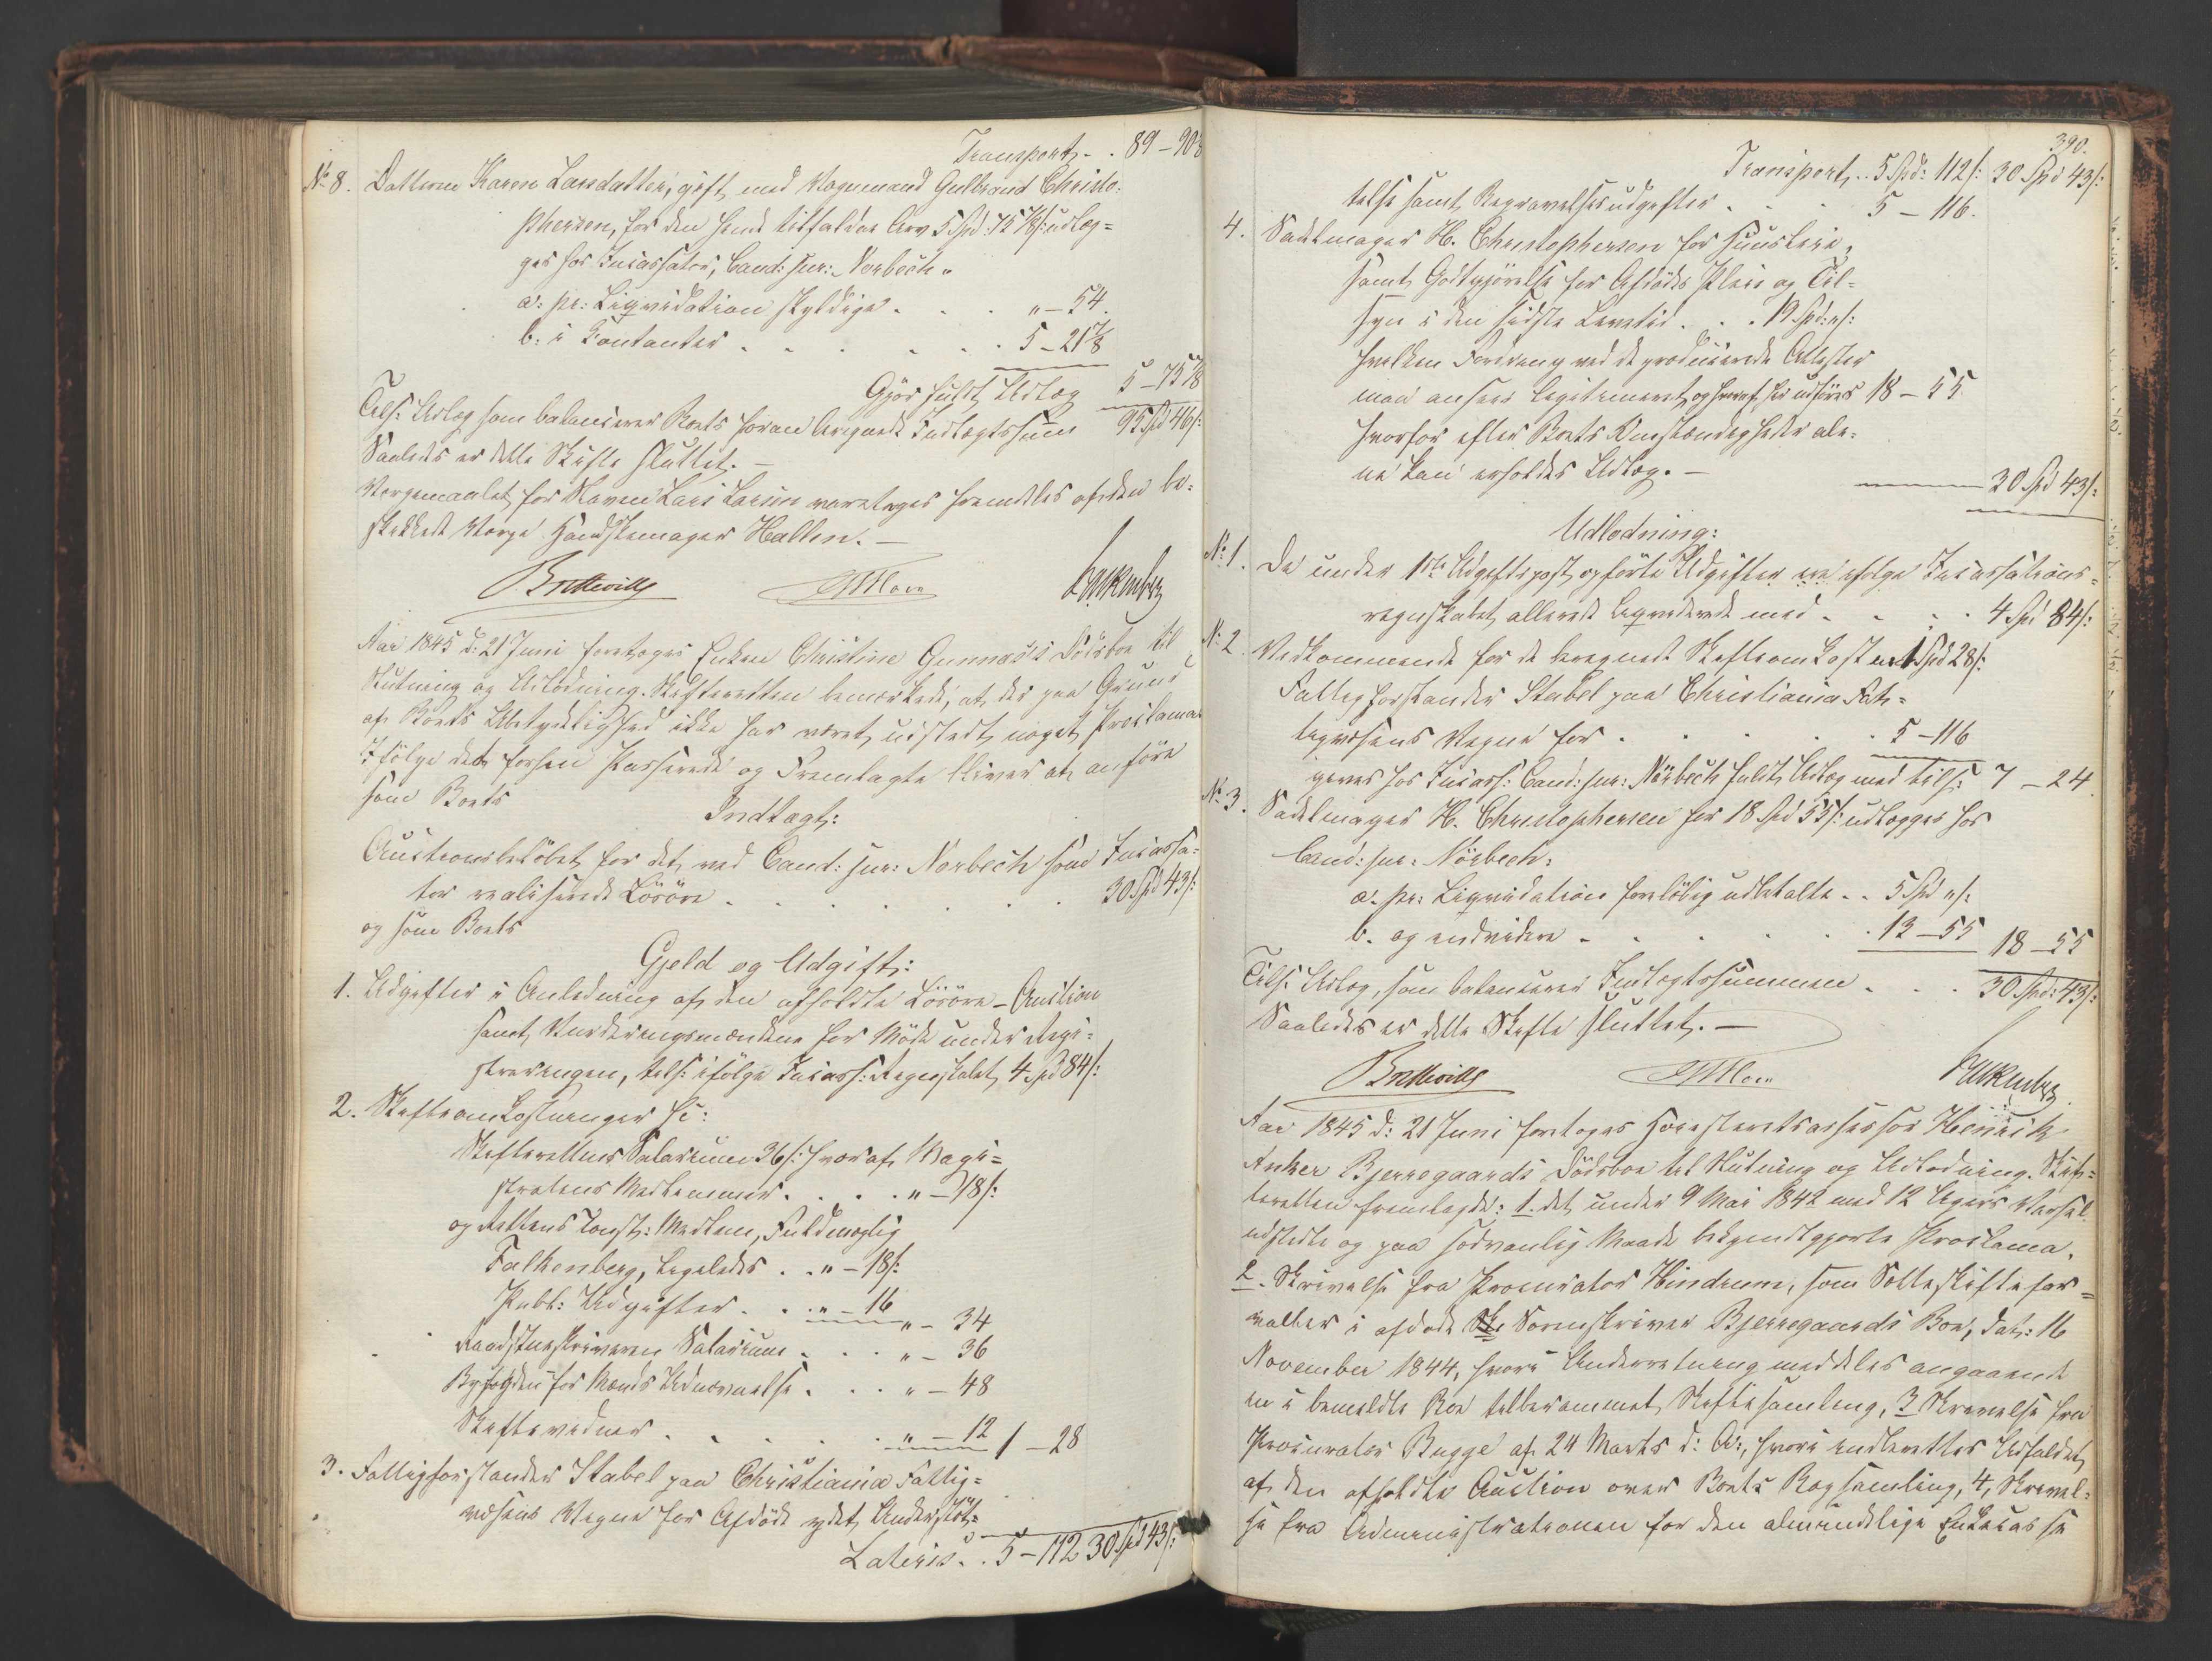 Transport . . 89 – 90
№ 8. Datteren Karen Larsdatter, gift med Vognmand Gulbrand Christo-
phersen, for den hende tilfaldne Arv 5 Spd: 75 7/8 s: udlæg-
ges hos Incassator, Cand: jur: Norbech
a: pr: Liqvidation skyldige . . . „ – 54.
b: i Contanter . . . . . . 5 – 21 7/8
Gjør fuldt Udlæg 5 – 75 7/8
Tils: Udlæg som balancerer Boets foran beregnede Indtægtssum 95 Spd 46 s:
Saaledes er dette Skifte sluttet. –
Værgemaalet for Sønnen Lars Larsen varetages fremdeles af den be-
skikkede Værge Handskemager Hallen. –
Bretteville Falkenberg
Aar 1845 d: 21 Juni foretoges Enken Christine Gunnas's Dødsboe til
Slutning og Udlodning. Skifteretten bemærkede, at der paa Grund
af Boets Ubetydelighed ikke har været udstedt noget Proclama.
Ifølge det forhen Passerede og Fremlagte bliver at anføre
som Boets
Indtægt:
Auctionsbeløbet for det ved Cand: jur: Norbech som Incassa-
tor realiserede Løsøre . . . . . . . 30 Spd 43 s:
og som Boets
Gjeld og Udgift:
1. Udgifter i Anledning af den afholdte Løsøre-Auction
samt Vurderingsmændene for Møde under Regi-
streringen, tils: ifølge Incass: Regnskabet 4 Spd 84 s:
2. Skifteomkostninger sc:
Skifterettens Salarium 36 s: hvoraf Magi-
stratens Medlemmer . . . . „ – 18 s:
og Rettens const: Medlem, Fuldmægtig
Falkenberg, ligeledes . . „ – 18 s:
Publ: Udgifter . . . „ – 16 „ – 34
Raadstueskriveren Salarium . . . „ – 36
Byfogden for Mænds Udnævnelse . . . „ – 48
Skiftevidner . . . . . „ – 12 1 – 28
3. Fattigforstander Stabel paa Christiania Fattig-
væsens Vegne for Afdøde ydet Understøt-
Lateris . . 5 – 112 30 Spd 43 s:
390.
Transport . . 5 Spd: 112 s: 30 Spd 43 s:
telse samt Begravelsesudgifter . . . 5 – 116.
4. Sadelmager H. Christophersen for Huusleie,
samt Godtgjørelse for Afdødes Pleie og Til-
syn i den sidste Levetid . . . 19 Spd: „ s:
hvilken Fordring ved de producerede Attester
maa ansees legitimeret, og hvoraf her udføres 18 – 55
hvorfor efter Boets Omstændigheder ale-
ne kan erholdes Udlæg. – 30 Spd 43 s:
Udlodning:
№ 1. De under 1ste Udgiftspost opførte Udgifter ere ifølge Incassations-
regnskabet allerede liqviderede med . . . . 4 Spd 84 s:
№ 2. Vedkommende for de beregnede Skifteomkost: 1 Spd 28 s:
Fattigforstander Stabel paa Christiania Fat-
tigvæsens Vegne for . . . . . 5 – 116
gives hos Incass: Cand: jur: Nørbech fuldt Udlæg med tils: 7 – 24.
№ 3. Sadelmager H. Christophersen for 18 Spd 55 s: udlægges hos
Cand: jur: Nørbech:
a. pr: Liqvidation foreløbig udbetalte . . 5 Spd „ s:
b. og endvidere . . . . . . 13 – 55 18 – 55
Tils: Udlæg, som balancerer Indtægtssummen . . . 30 Spd: 43 s:
Saaledes er dette Skifte sluttet. –
Bretteville Falkenberg
Aar 1845 d: 21 Juni foretoges Høiesteretsassessor Henrik
Anker Bjerregaards Dødsboe til Slutning og Udlodning. Skif-
teretten fremlagde: 1. det under 9 Mai 1842 med 12 Ugers Varsel
udstedte og paa sædvanlig Maade bekjendtgjorte Proclama,
2. Skrivelse fra Procurator Hindrum, som Setteskiftefor-
valter i afdøde Sorenskriver Bjerregaards Boe, dat: 16
November 1844, hvori Underretning meddeles angaaende
en i bemeldte Boe tilberammet Skiftesamling, 3 Skrivelse fra
Procurator Bugge af 24 Marts d: A:, hvori indberettes Udfaldet
af den afholdte Auction over Boets Bogsamling, 4, Skrivel-
se fra Administrationen for den almindelige Enkecasse